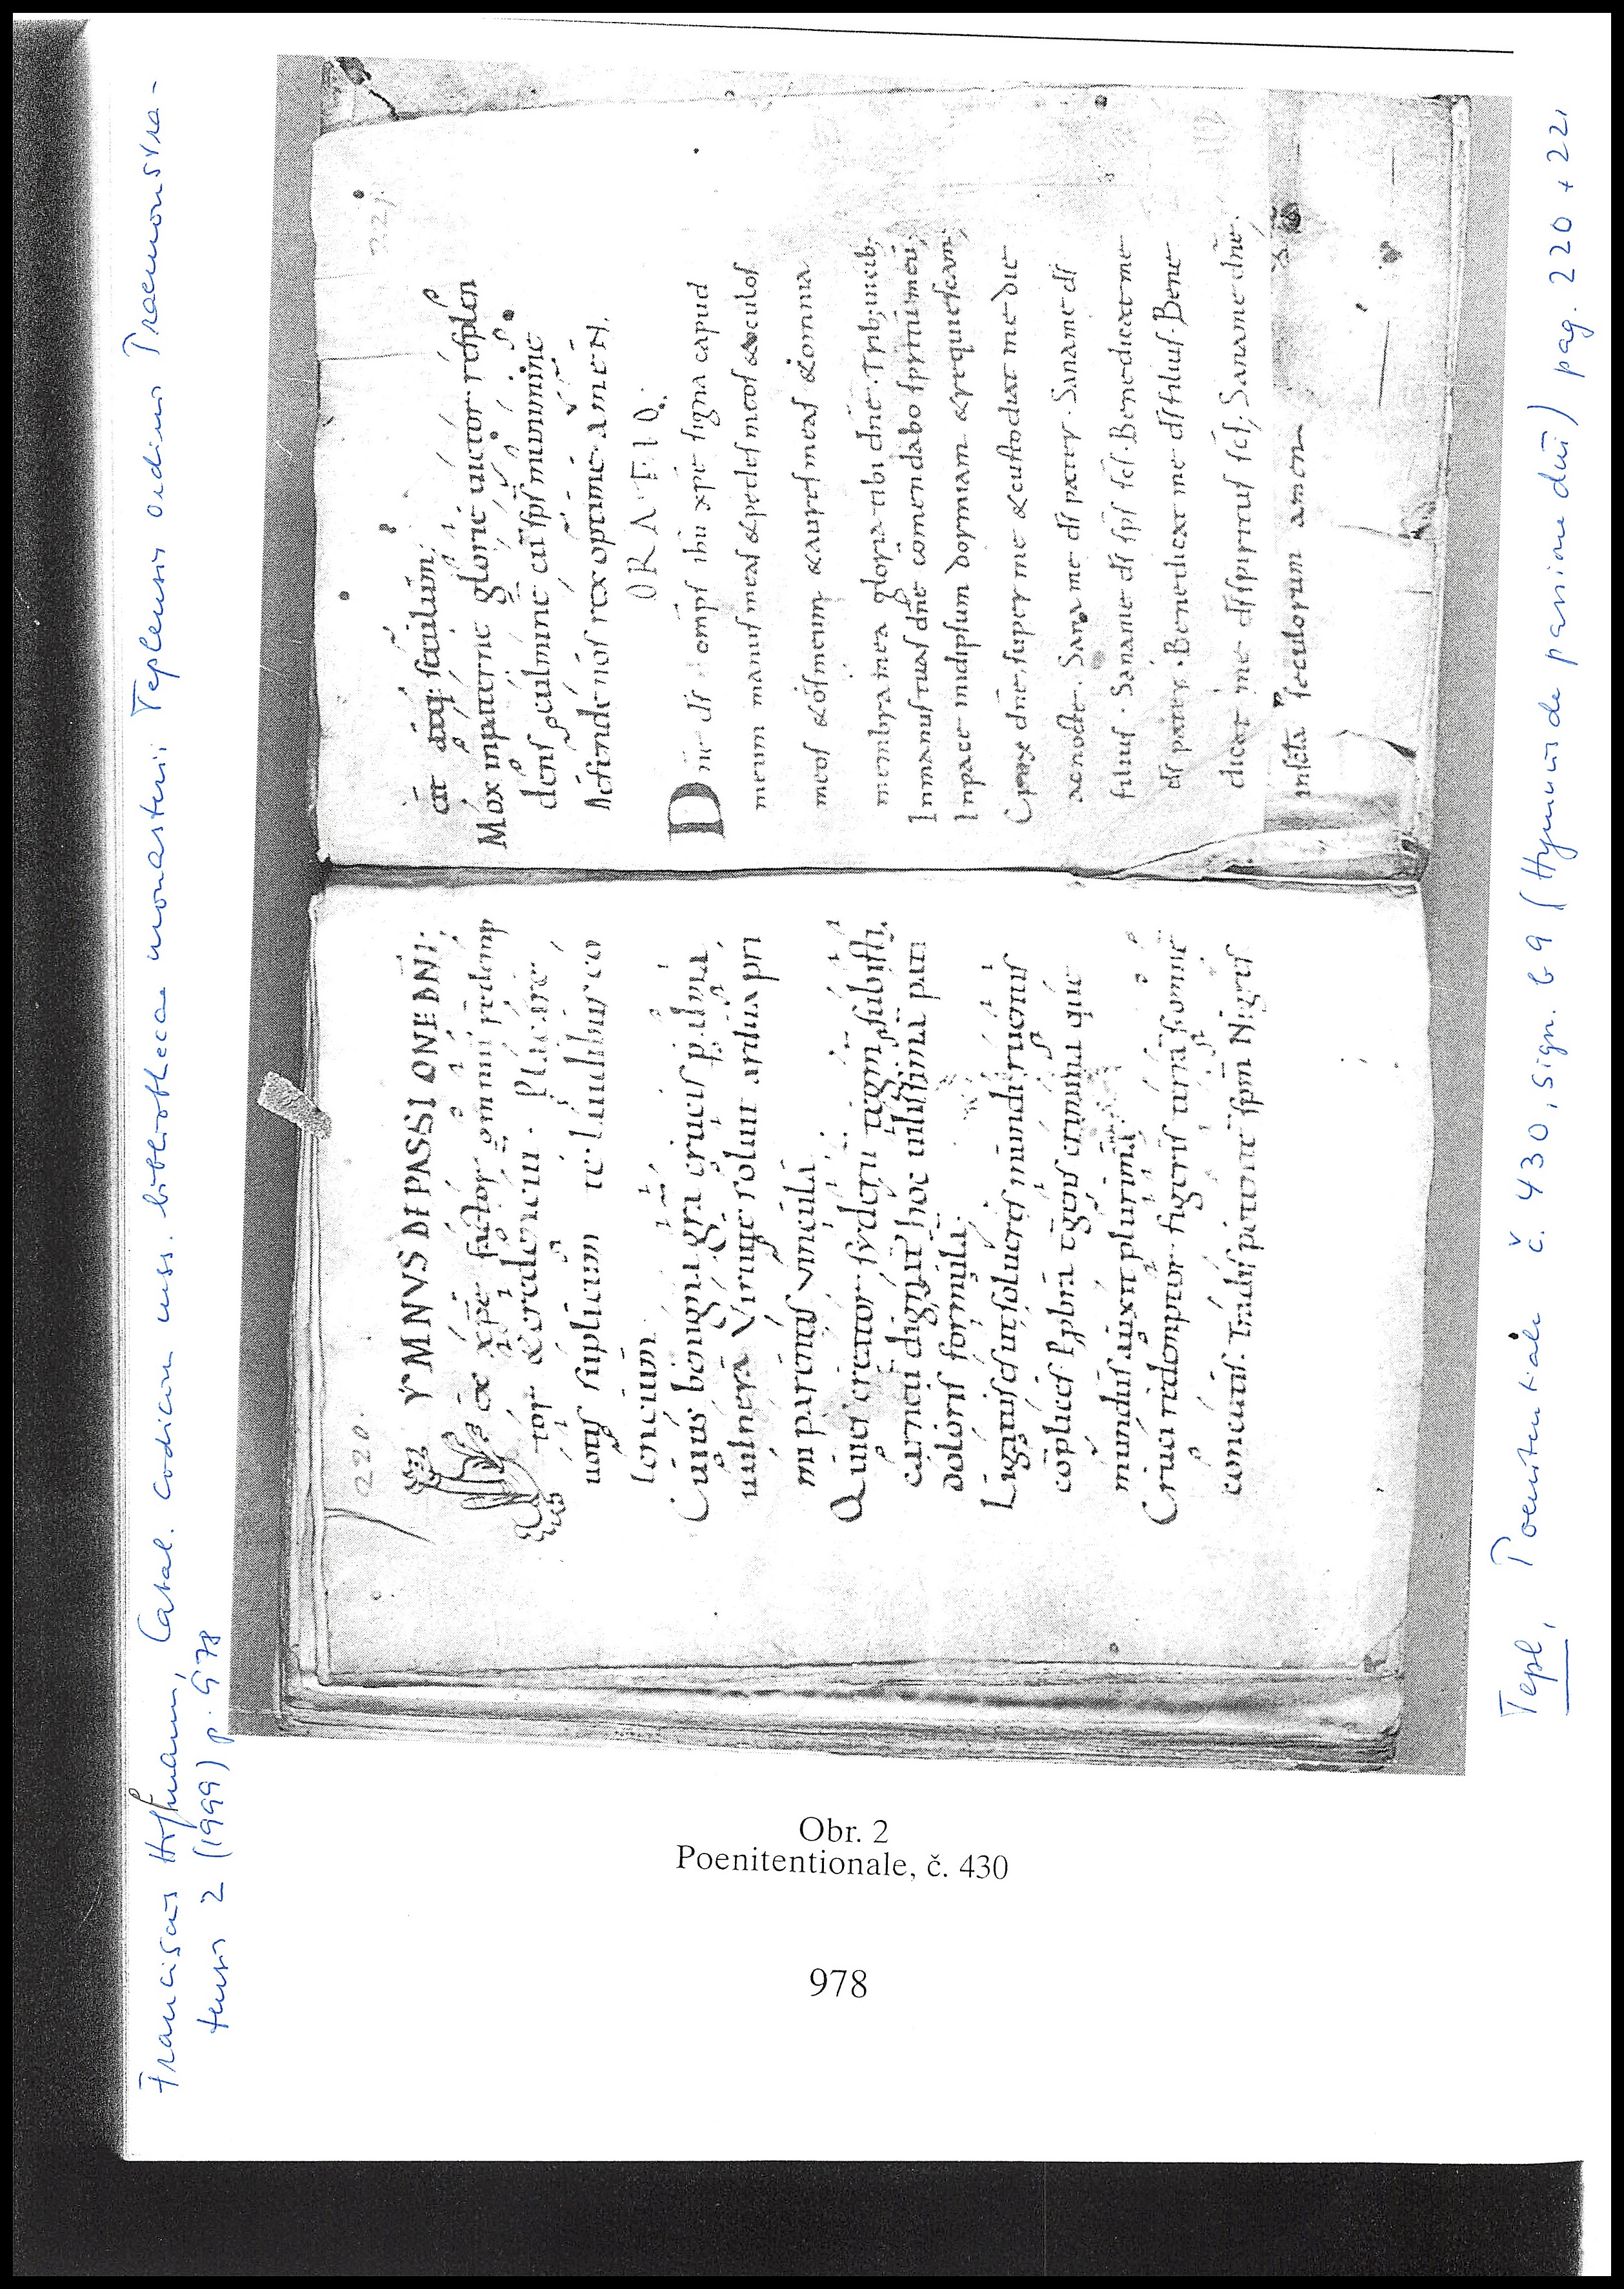 Franciscus Hoffmann, Catal. codicum mss. bibliothecae monasterii Teplensis ordinis Praemonstra-
tensis 2 (1999) p. 978
220.
YMNVS DE PASSIONE DNI;
ex xpe factor omniū redemp
tor & credenciū. Placare
uotis suplicum te laudibus co
lencium.
Cuius benigna grā crucis p alma
uulnera virtute soluit ardua pri
mi parentis vincula.
Qui es creator syderū tegm subisti
carneū dignat hoc uilissimā pati
doloris formulā;
Ligatus es ut solueres mundi ruentis
cōplices p pbra tgens crimina que
mundus auxit plurima.
Cruci redemptor figeris terrā s; omnē
concutis. Tradis potente spm Nigris
221.
cit atq; scłum;
Mox in paterne glorie uictor resplen
dens culmine cū sps munimine
defende nos rex optime. AMEN.
ORATIO.
Dne ds omps ihu xpe signa capud
meum manus meas & pedes meos & oculos
meos & os meum & aures meas & omnia
membra mea gloria tibi dne. Trib; uicib;
In manus tuas dne comendabo spm meū;
In pace in idipsum dormiam & requiescam;
Crux dne super me & custodiat me die
ac nocte. Sana me ds pater. Sana me ds
filius. Sana me ds sps scs. Benedicat me
ds pater. Benedicat me ds filius. Bene
dicat me ds spiritus scs. Sana me dne,
in scta seculorum amen
Obr. 2
Poenitentionale, č. 430
978
Tepl, Poenitentiale č. 430, sign. b 9 (Hymnus de passione dni) pag. 220 + 221